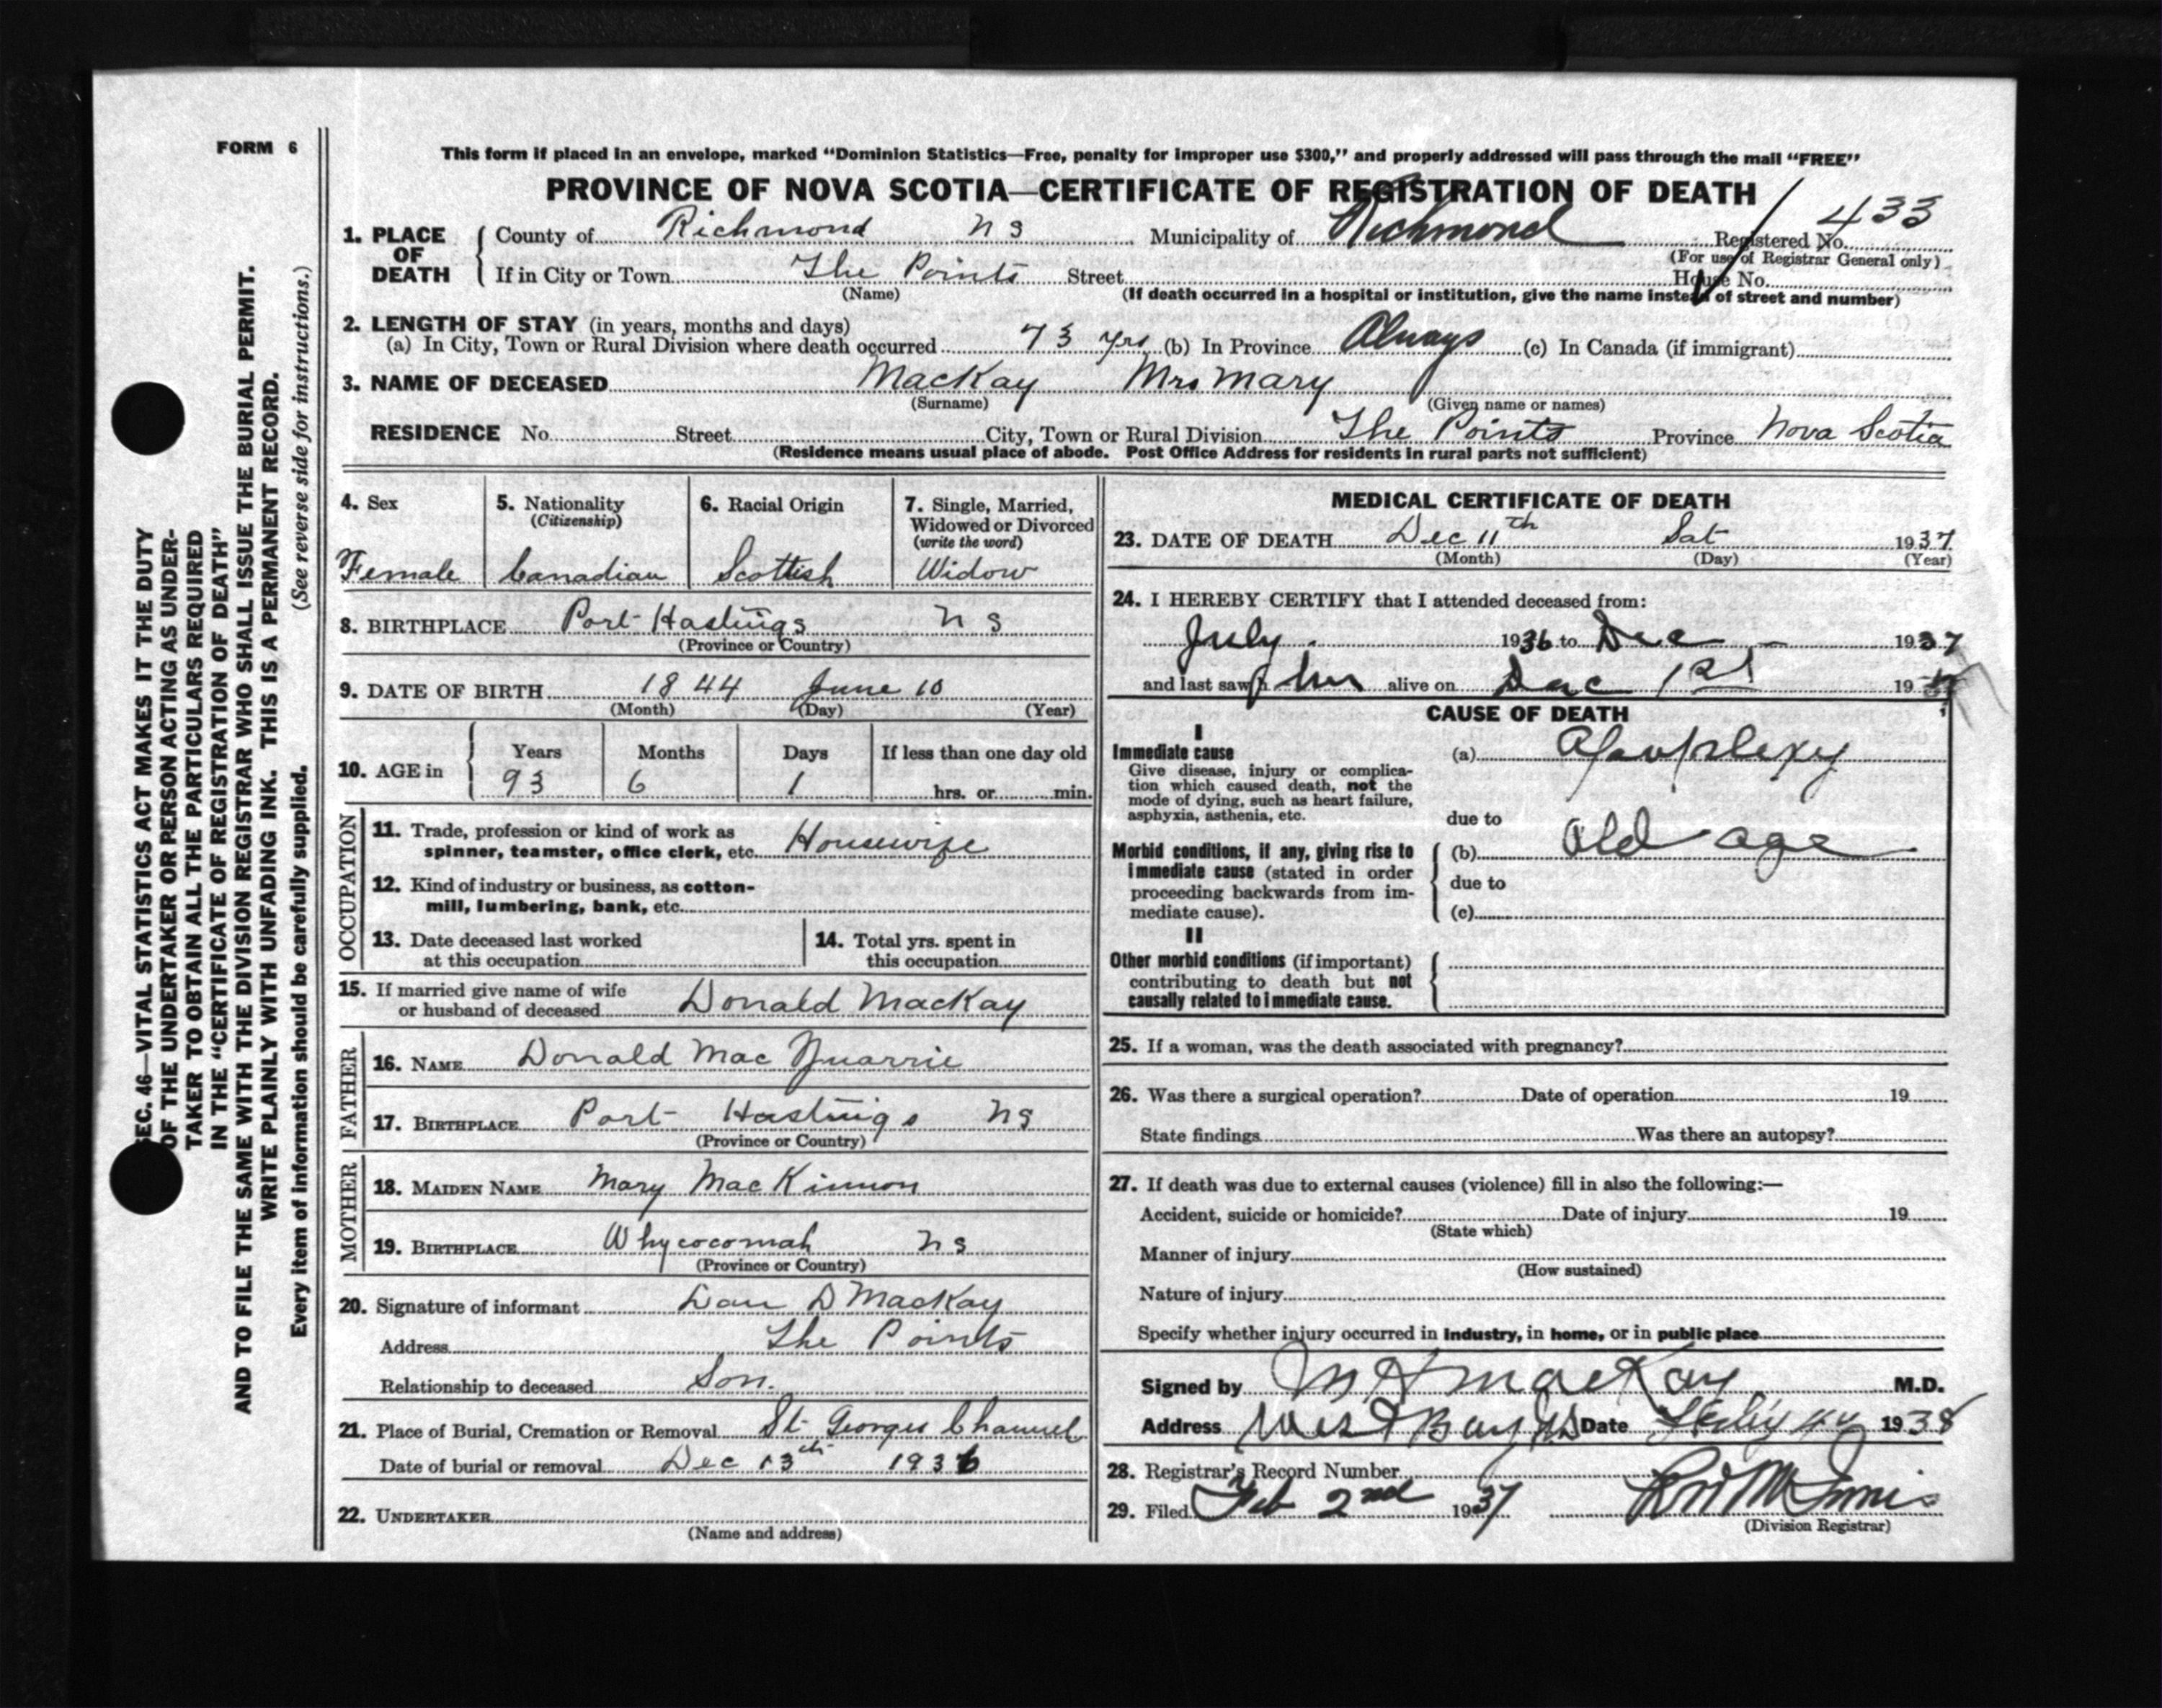 FORM 6
This form if placed in an envelope, marked "Dominion Statistics—Free, penalty for improper use $300," and properly addressed will pass through the mail "FREE"
PROVINCE OF NOVA SCOTIA—CERTIFICATE OF REGISTRATION OF DEATH
1. PLACE OF DEATH { County of Richmond N S Municipality of Richmond Registered No. 433
(For use of Registrar General only)
If in City or Town The Points Street House No.
(Name) (If death occurred in a hospital or institution, give the name instead of street and number)
2. LENGTH OF STAY (in years, months and days)
(a) In City, Town or Rural Division where death occurred 73 yrs (b) In Province Always (c) In Canada (if immigrant)
3. NAME OF DECEASED MacKay Mrs Mary
(Surname) (Given name or names)
RESIDENCE No. Street City, Town or Rural Division The Points Province Nova Scotia
(Residence means usual place of abode. Post Office Address for residents in rural parts not sufficient)
4. Sex
Female
5. Nationality
(Citizenship)
Canadian
6. Racial Origin
Scottish
7. Single, Married,
Widowed or Divorced
(write the word)
Widow
8. BIRTHPLACE Port Hastings N S
(Province or Country)
9. DATE OF BIRTH 1844 June 10
(Month) (Day) (Year)
10. AGE in { Years Months Days If less than one day old
93 6 1 hrs. or min.
OCCUPATION
11. Trade, profession or kind of work as
spinner, teamster, office clerk, etc. Housewife
12. Kind of industry or business, as cotton-
mill, lumbering, bank, etc.
13. Date deceased last worked
at this occupation
14. Total yrs. spent in
this occupation
15. If married give name of wife
or husband of deceased Donald MacKay
FATHER
16. NAME Donald Mac Quarrie
17. BIRTHPLACE Port Hastings N S
(Province or Country)
MOTHER
18. MAIDEN NAME Mary MacKinnon
19. BIRTHPLACE Whycocomah N S
(Province or Country)
20. Signature of informant Dan D MacKay
Address The Points
Relationship to deceased Son.
21. Place of Burial, Cremation or Removal St Georges Channel
Date of burial or removal Dec 13th 1936
22. UNDERTAKER
(Name and address)
MEDICAL CERTIFICATE OF DEATH
23. DATE OF DEATH Dec 11th Sat 1937
(Month) (Day) (Year)
24. I HEREBY CERTIFY that I attended deceased from:
July 1936 to Dec — 1937
and last saw her alive on Dec 1st 1937
CAUSE OF DEATH
I
Immediate cause (a) Apoplexy
Give disease, injury or complica-
tion which caused death, not the
mode of dying, such as heart failure,
asphyxia, asthenia, etc.
due to
Morbid conditions, if any, giving rise to
immediate cause (stated in order
proceeding backwards from im-
mediate cause).
(b) Old age
due to
(c)
II
Other morbid conditions (if important)
contributing to death but not
causally related to immediate cause.
25. If a woman, was the death associated with pregnancy?
26. Was there a surgical operation? Date of operation 19
State findings Was there an autopsy?
27. If death was due to external causes (violence) fill in also the following:—
Accident, suicide or homicide? Date of injury 19
(State which)
Manner of injury
(How sustained)
Nature of injury
Specify whether injury occurred in industry, in home, or in public place
Signed by M H MacKay M.D.
Address West Bay NS Date 1938
28. Registrar's Record Number
29. Filed Feb 2nd 1937
(Division Registrar)
SEC. 46—VITAL STATISTICS ACT MAKES IT THE DUTY
OF THE UNDERTAKER OR PERSON ACTING AS UNDER-
TAKER TO OBTAIN ALL THE PARTICULARS REQUIRED
IN THE "CERTIFICATE OF REGISTRATION OF DEATH"
AND TO FILE THE SAME WITH THE DIVISION REGISTRAR WHO SHALL ISSUE THE BURIAL PERMIT.
WRITE PLAINLY WITH UNFADING INK. THIS IS A PERMANENT RECORD.
Every item of information should be carefully supplied. (See reverse side for instructions.)